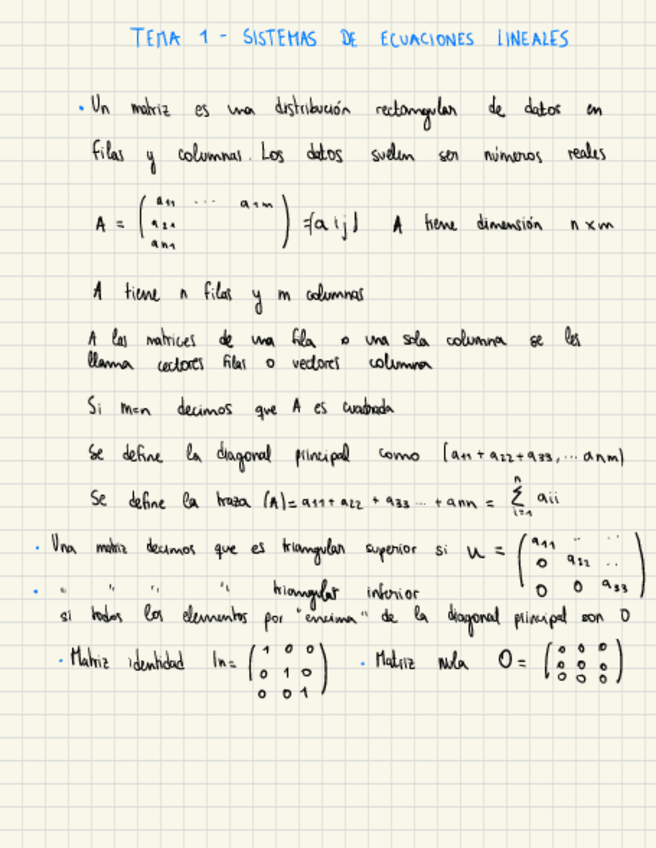 TEMA 1 - SISTEMAS DE ECUACIONES LINEALES
• Un matriz es una distribución rectangular de datos en
filas y columnas. Los datos suelen ser números reales
A = ( a11 ... a1m ; a21 ; an1 ) = (aij) A tiene dimensión n x m
A tiene n filas y m columnas
A las matrices de una fila o una sola columna se les
llama cectores filas o vectores columna
Si m=n decimos que A es cuadrada
Se define la diagonal principal como (a11 + a22 + a33, ... anm)
Se define la traza (A) = a11 + a22 + a33 ... + ann = n Σ i=1 aii
• Una matriz decimos que es triangular superior si U = ( a11 .. .. ; 0 a22 .. ; 0 0 a33 )
• " " " " triangular inferior
si todos los elementos por "encima" de la diagonal principal son 0
• Matriz identidad In = ( 1 0 0 ; 0 1 0 ; 0 0 1 ) • Matriz nula O = ( 0 0 0 ; 0 0 0 ; 0 0 0 )